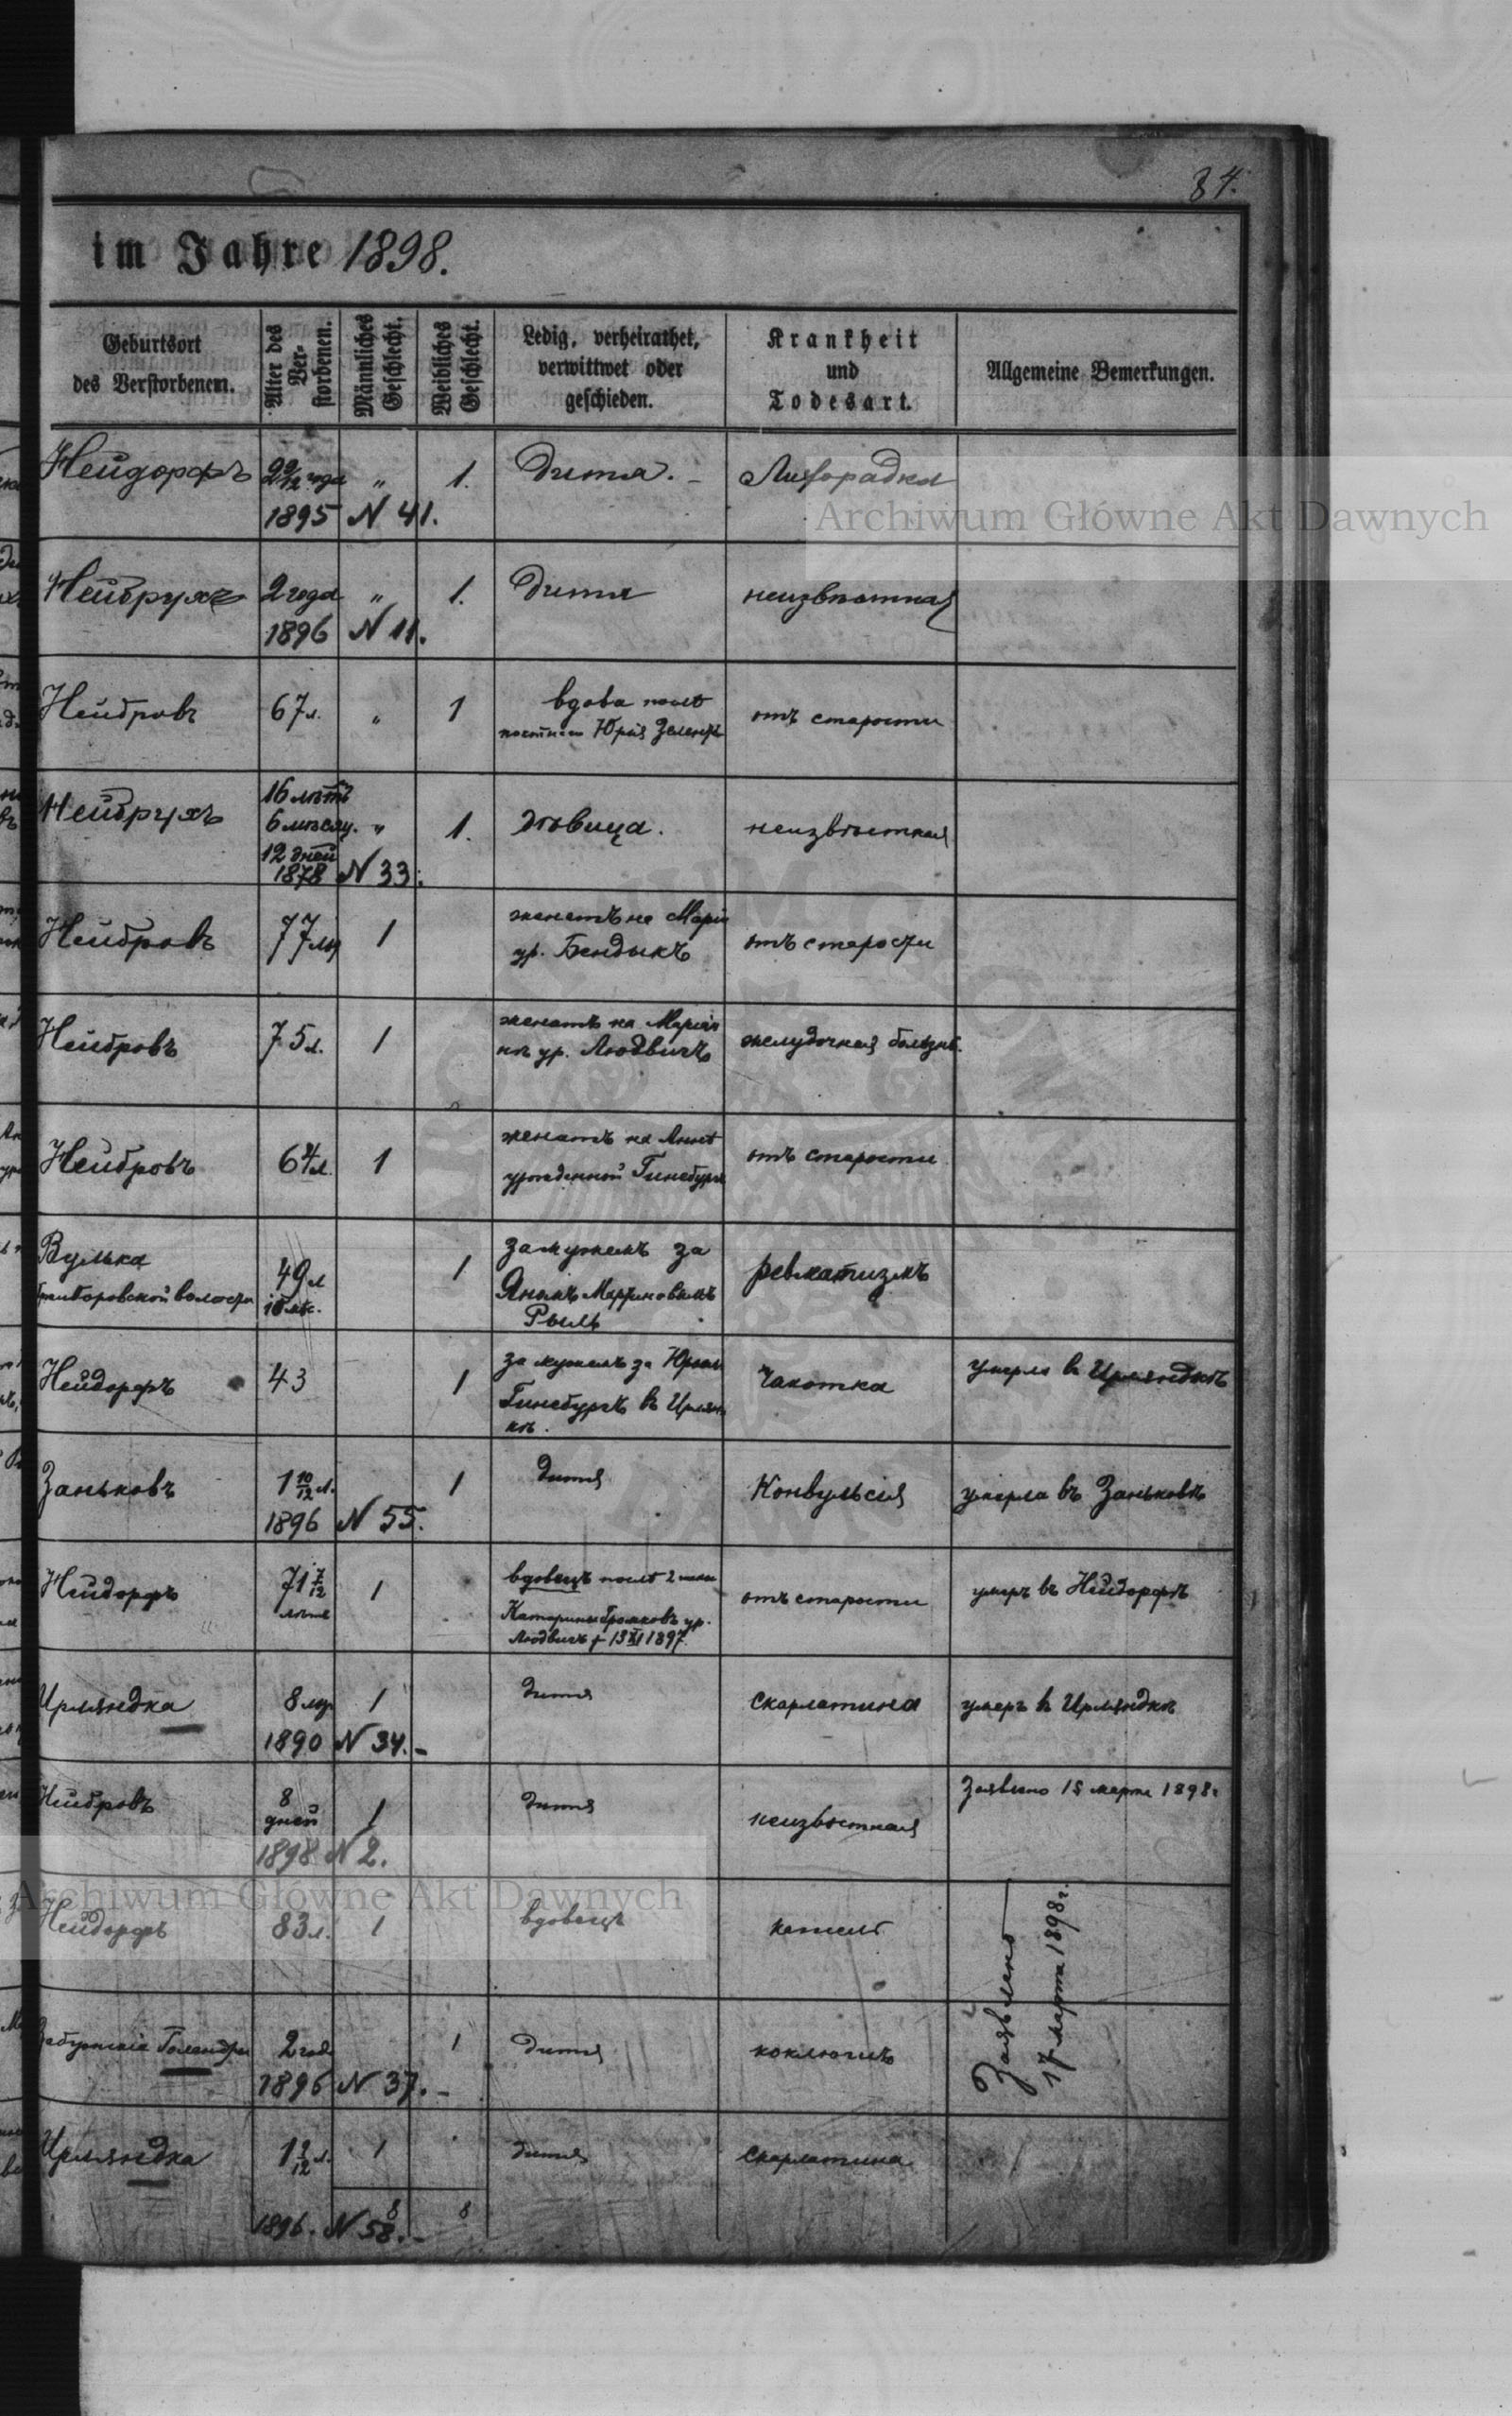 84.
im Jahre 1898.
Geburtsort des Verstorbenem.
Alter des Ver-storbenen.
Männliches Geschlecht.
Weibliches Geschlecht.
Ledig, verheirathet, verwittwet oder geschieden.
Krankheit und Todesart.
Allgemeine Bemerkungen.
Нейдорфъ 2 9/12 года " 1. дитя. Лихорадка
1895 N 41.
Archiwum Główne Akt Dawnych
Нейбрухъ 2 года " 1. дитя неизвѣстная
1896 N 11.
Нейбровъ 67 л. " 1 вдова послѣ
Юрія Зеленхъ отъ старости
Нейбрухъ 16 лѣтъ
6 мѣсяц. " 1. дѣвица. неизвѣстная
12 дней
1878 N 33.
Нейбровъ 77 лѣт 1 женатъ на Маріи
ур. Бендыкъ отъ старости
Нейбровъ 75 л. 1 женатъ на Маріан
нѣ ур. Людвигъ желудочная болѣзнь.
Нейбровъ 64 л. 1 женатъ на Аннѣ
урожденной Гинсбургъ отъ старости
Вулька
волости 49 л 1 замужемъ за
Яномъ Мартиновымъ
Рыль ревматизмъ
Нейдорфъ 43 1 за мужемъ за Юріемъ
Гинсбургъ въ Ирлянд
кѣ. Чахотка умерла въ Ирляндкѣ
Заньковъ 1 10/12 л. 1 дитя Конвульсія умерла въ Заньковѣ
1896 N 55.
Нейдорфъ 71 7/12
лѣтъ 1 вдовецъ послѣ 2 жены
Катарины Громковъ ур.
Людвигъ + 13 XI 1897. отъ старости умеръ въ Нейдорфѣ
Ирляндка 8 лѣт 1 дитя скарлатина умеръ въ Ирляндкѣ
1890 N 34.-
Нейбровъ 8
дней 1 дитя неизвѣстная Заявлено 15 марта 1898 г
1898 N 2.
Archiwum Główne Akt Dawnych
Нейдорфъ 83 л. 1 вдовецъ кашель
Заявлено
17 марта 1898 г.
Забужскія Голендры 2 года 1 дитя коклюшъ
1896 N 37.-
Ирляндка 1 2/12 л. 1 дитя скарлатина
8 8
1896. N 58.-